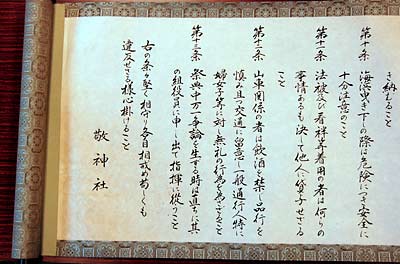 き納すること
第十条 海浜曳き下しの際は危険につき安全に
十分注意のこと
第十一条 法被及び着袢等着用の者は何らの
事情あるも決して他人に貸与せざる
こと
第十二条 山車関係の者は飲酒を禁し品行を
慎み且つ交通に留意し一般通行人特に
婦女子等に対し無礼の行為を為さざること
第十三条 祭典中万一争論を生ずる時は直ちに其
の組役員に申し出て指揮に従うこと
右の条々堅く相守り各自相戒め苟しくも
違反せざる様心掛けること
敬神社